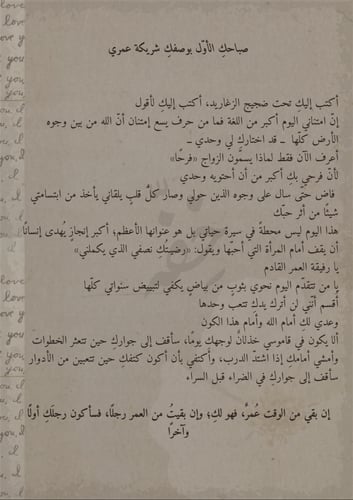 صباحكِ الأوّل بوصفكِ شريكة عمري
أكتب إليك تحت ضجيج الزغاريد، أكتب إليكِ لأقول
إنّ امتناني اليوم أكبر من اللغة فما من حرف يسع إمتنان أنّ الله من بين وجوه
الأرض كلّها ـ قد اختاركِ لي وحدي ـ
أعرف الآن فقط لماذا يسمُّون الزواج «فرحًا»
لأنّ فرحي بكِ أكبر من أن أحتويه وحدي
فاض حتّى سال على وجوه الذين حولي وصار كلُّ قلب يلقاني يأخذ من ابتسامتي
شيئًا من أثر حبّك
هذا اليوم ليس محطةً في سيرة حياتي بل هو عنوانها الأعظم؛ أكبر إنجازٍ يُهدى إنسانا
أن يقف أمام المرأة التي أحبّها ويقول: «رضيتكِ نصفي الذي يكملني»
يا رفيقة العمر القادم
يا من تتقدّم اليوم نحوي بثوبٍ من بياضٍ يكفي لتبييض سنواتي كلّها
أقسم أنّني لن أترك يدكِ تتعب وحدها
وعدي لكِ أمام الله وأمام هذا الكون
ألا يكون في قاموسي خذلان لوجهكِ يومًا، سأقف إلى جواركِ حين تتعثر الخطوات
وأمشي أمامكِ إذا اشتدّ الدرب، وأكتفي بأن أكون كتفكِ حين تتعبين من الأدوار
سأقف إلى جوارك في الضراء قبل السراء
إن بقي من الوقت عُمرٌ، فهو لكِ؛ وإن بقيتُ من العمر رجلًا، فسأكون رجلَكِ أولًا
وآخرًا
love
love
you